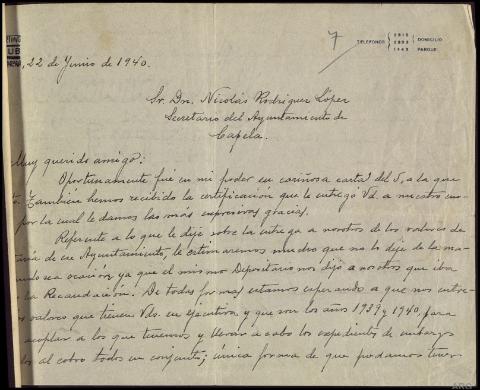 7
TELEFONOS 2810 2803 1443 DOMICILIO PARQUE
, 22 de Junio de 1940.
Sr. Dn. Nicolás Rodríguez López
Secretario del Ayuntamiento de
Capela.
Muy querido amigo:
Oportunamente fué en mi poder su cariñosa carta del 5, a la que
También hemos recibido la certificación que le entregó Vd. a nuestro
por la cual le damos las más expresivas gracias.
Referente a lo que le dije sobre la entrega a nosotros de los valores de
de ese Ayuntamiento, le estimaremos mucho que no lo deje de la ma-
sea ocasión, ya que el mismo Depositario nos dijo a nosotros que iba
la Recaudación. De todas formas estamos esperando a que nos entre-
valores que tienen Vds. en ejecutiva y que son los años 1939 y 1940, para
acoplar a los que tenemos y llevar a cabo los expedientes de embargo
al cobro todos en conjunto; única forma de que podamos tener